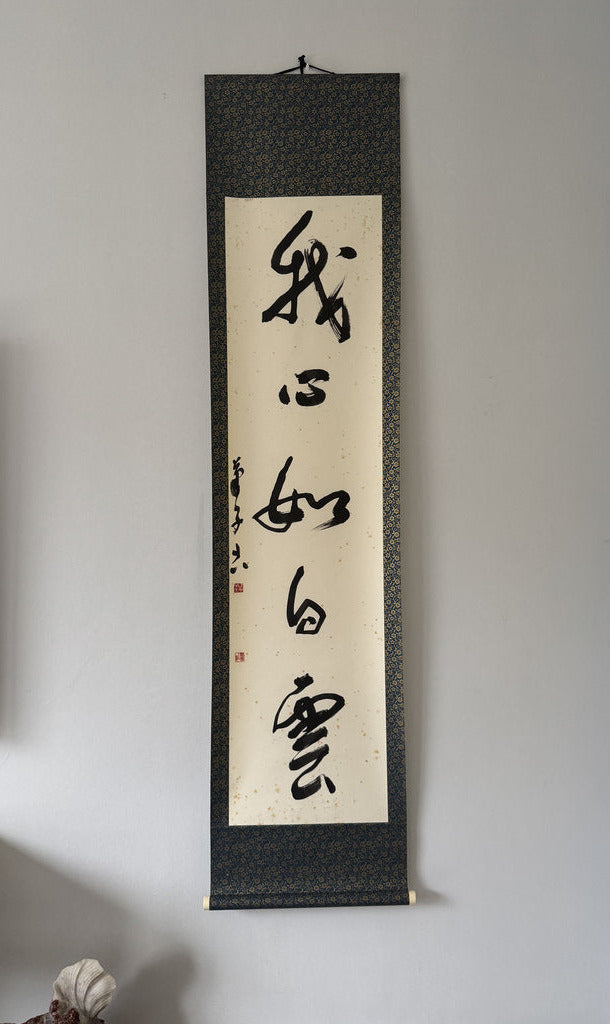 我心如白雲